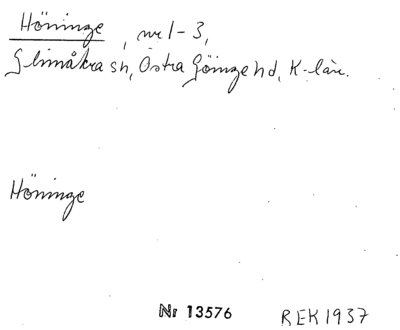 Höninge, nr 1-3,
Glimåkra sn, Östra Göinge hd, K-län.
Höninge
Nr 13576 REK 1937